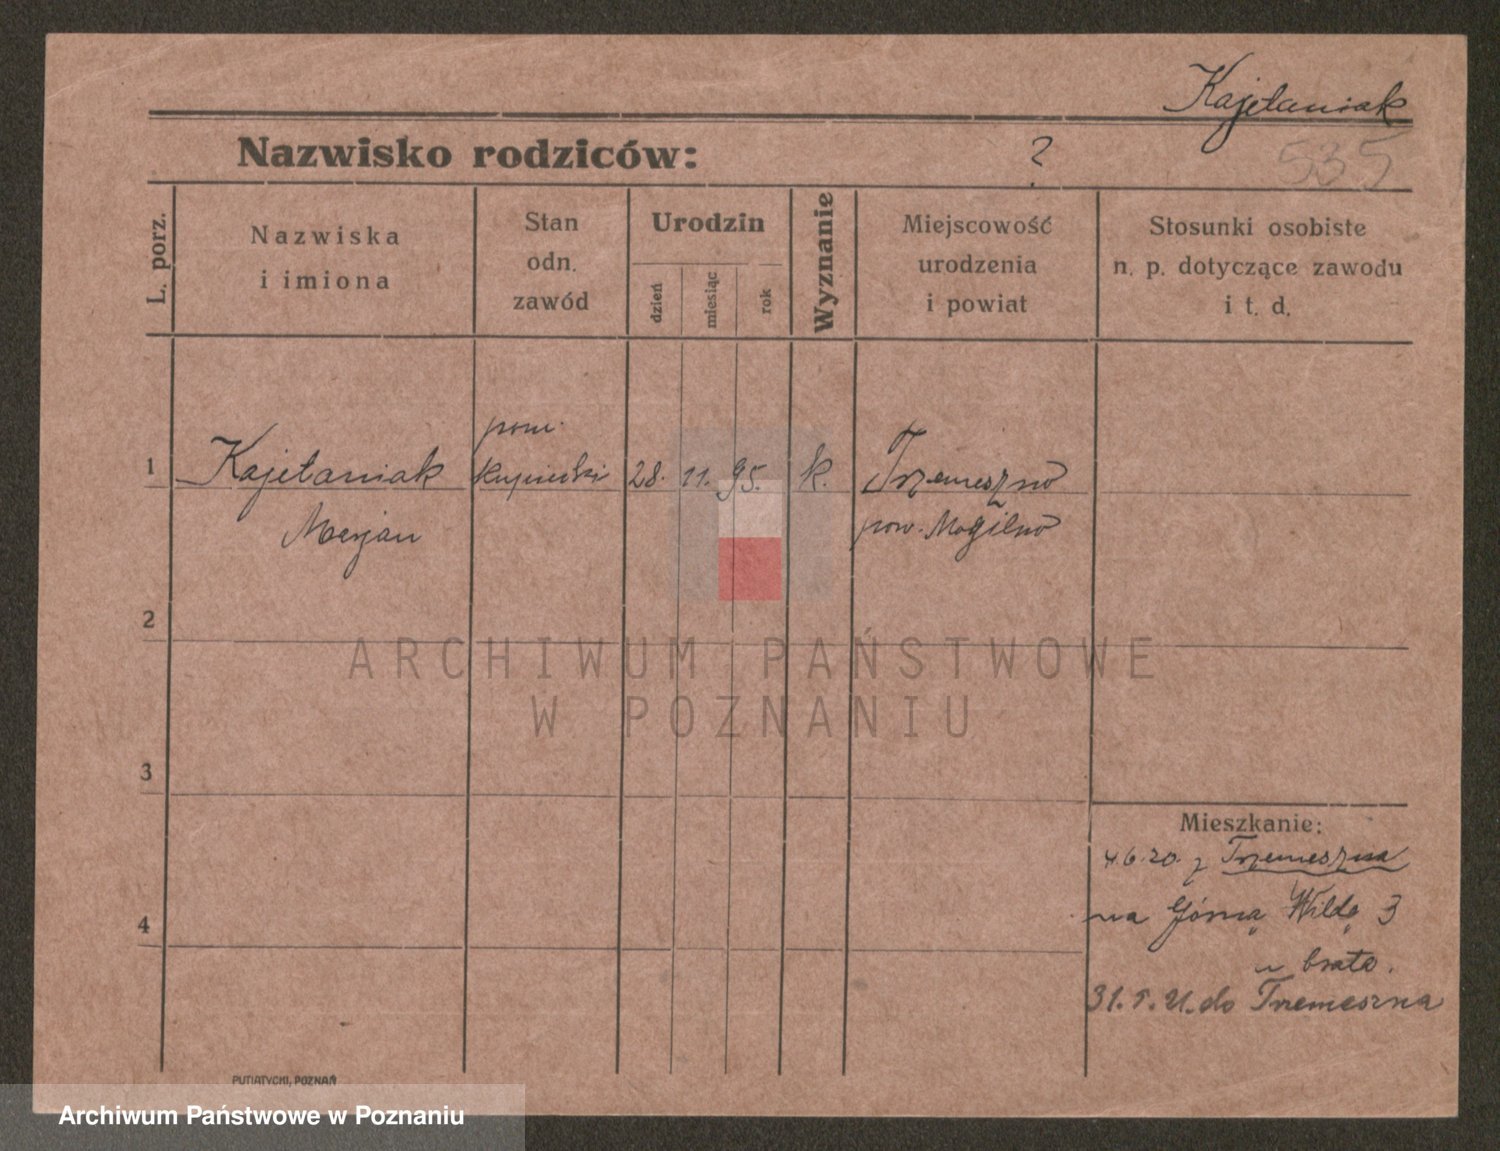 Kajetaniak
Nazwisko rodziców: ?
535
L. porz.
Nazwiska
i imiona
Stan
odn.
zawód
Urodzin
dzień
miesiąc
rok
Wyznanie
Miejscowość
urodzenia
i powiat
Stosunki osobiste
n. p. dotyczące zawodu
i t. d.
1
Kajetaniak
Marjan
pom.
kupiecki
28. 11. 95.
k.
Trzemeszno
pow. Mogilno
2
3
4
Mieszkanie:
4.6.20. z Trzemeszna
na Górną Wildę 3
u brata.
31.5.21. do Trzemeszna
PUTIATYCKI, POZNAŃ
ARCHIWUM PAŃSTWOWE
W POZNANIU
Archiwum Państwowe w Poznaniu